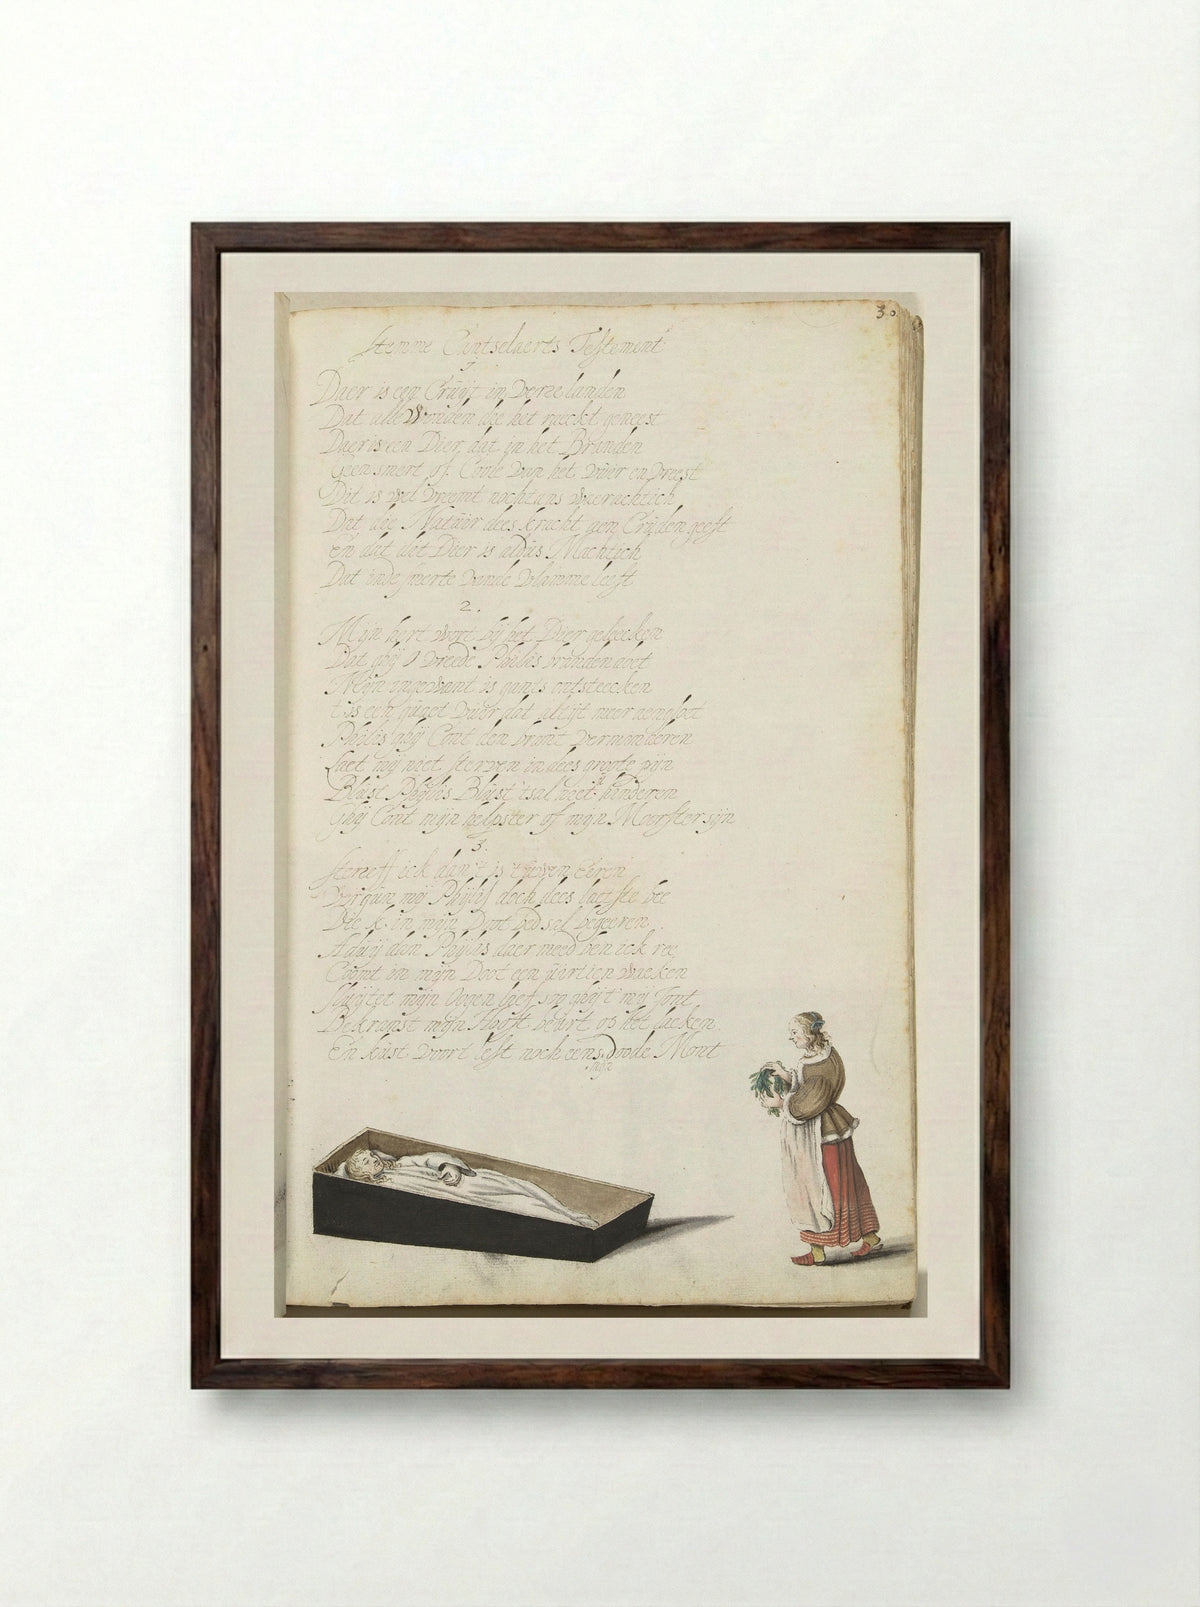 30
Stemme Cintselaerts Testement
1
Daer is een Cruijt in verre landen
Dat alle Wonden die het raeckt geneest
Daer is een Dier dat in het Branden
Geen smert of Coule van het Vuier en vreest
Dit is wel Vreemt nochtans waerachtich
Dat die Natuur dees kracht aen Cruijden geeft
En dat dat Dier is aldus Machtich
Dat inde smerte vande Vlamme leeft
2.
Mijn hart wort bij het Dier geleecken
Dat ghij O wreede Philis branden doet
Mijn ingewant is gants ontsteecken
t is een quaet vuur dat altijt meer aen
Philis ghij Cont den brant verminderen
Laet mij niet sterven in dees groote pijn
Blust Phylis Blust tsal niet hinderen
Ghij Cont mijn helpster of mijn Moorster sijn
3.
Sterf ick dan't is t'uwen Eeren
Vergun mij Phylis doch dees laetste bee
Die k in mijn Doot bed sal begeeren
dan Phylis daer mede ben ick ree
Coomt in mijn Doot een uurtien waeken
Sluijtet mijn Oogen
Bekranst mijn Hooft beurt op het laecken
En kust voort lest noch eens doode Mont
mijn